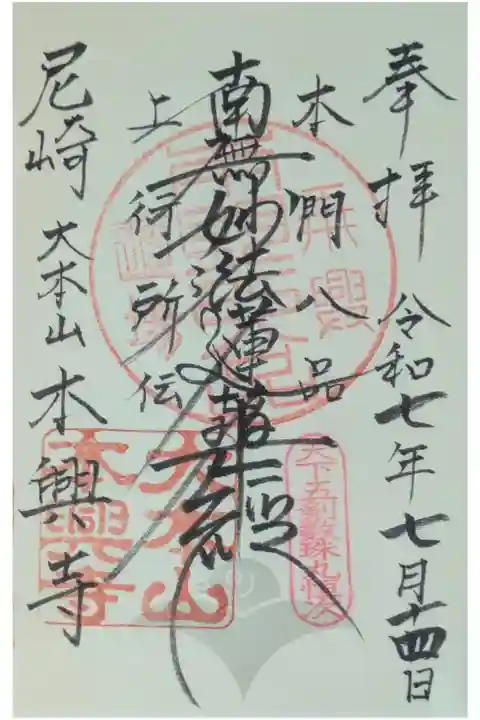 奉拝 令和七年七月十四日
本門八品
南無妙法蓮華経
上行所伝
尼崎 大本山 本興寺
天下五剣 数珠丸恒次
大本山
本興寺